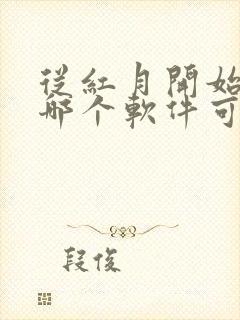 從紅月開始
哪个軟件可
段俊